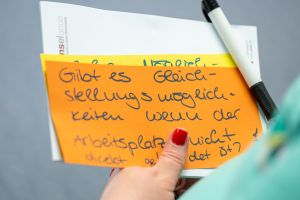 nsel
Gibt es Gleich-
stellungsmöglich-
keiten wenn der
Arbeitsplatz nicht
direkt det ist?